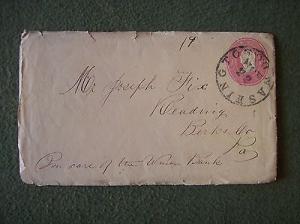 19
WASHINGTON
Mr Joseph Fix
Reading
Berks Co
Pa
In care of the Union Bank